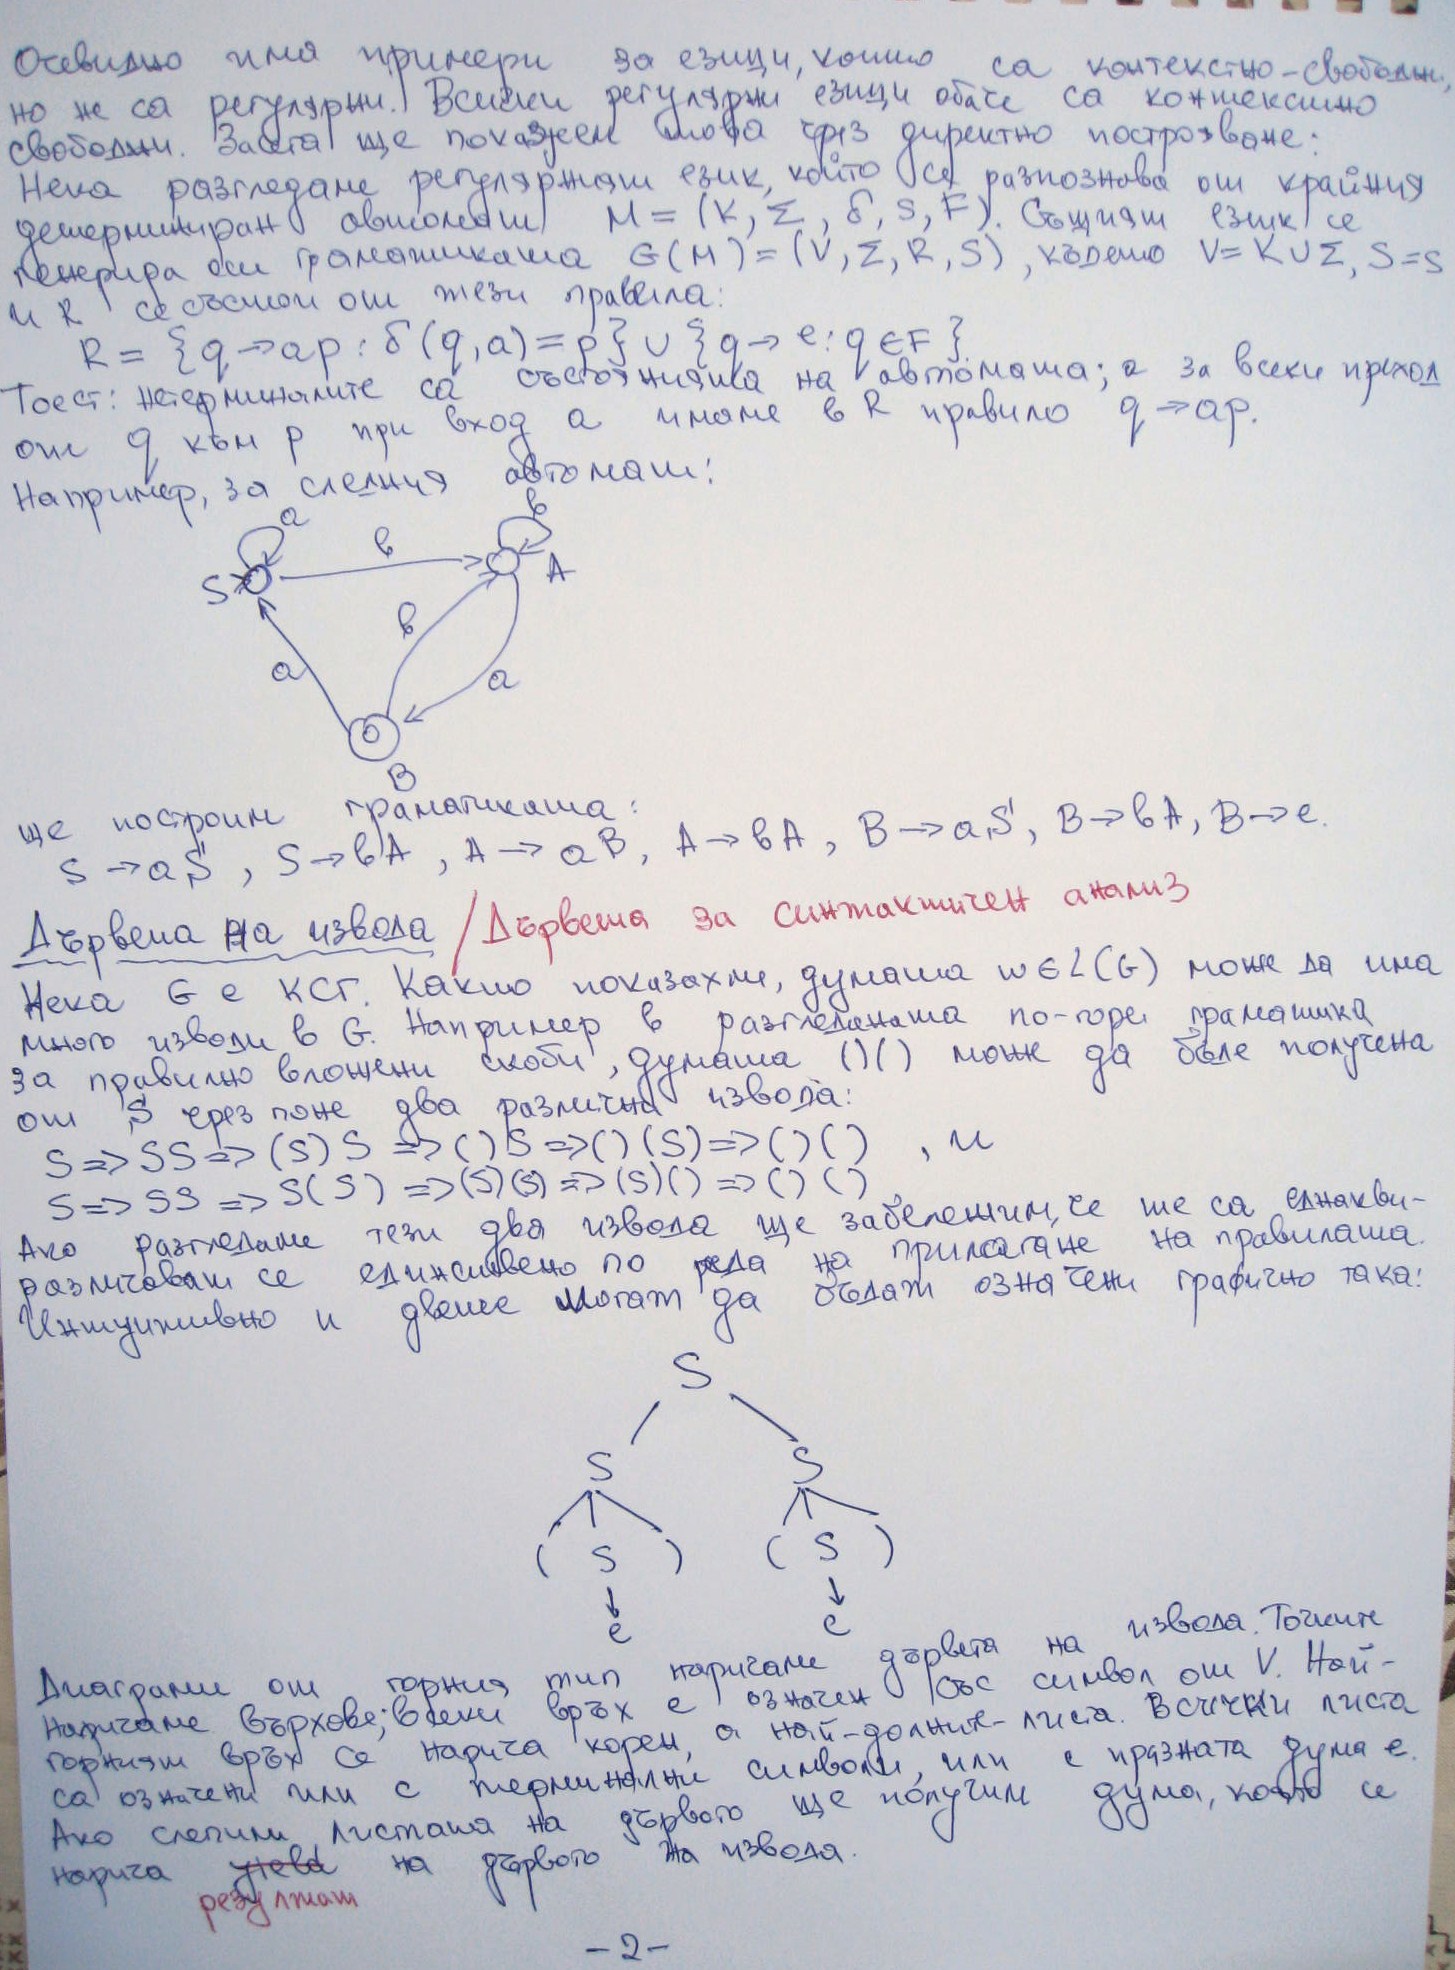 Очевидно има примери за езици, които са контекстно-свободни,
но не са регулярни. Всички регулярни езици обаче са контекстно
свободни. Засега ще покажем това чрез директно построяване:
Нека разгледаме регулярният език, който се разпознава от крайния
детерминиран автомат M = (K, Σ, δ, s, F). Същият език се
генерира от граматиката G(M) = (V, Σ, R, S), където V = K∪Σ, S = s
и R се състои от тези правила:
R = {q → ap : δ(q, a) = p} ∪ {q → e : q ∈ F}.
Тоест: нетерминалите са състоянията на автомата; а за всеки преход
от q към p при вход a имаме в R правило q → ap.
Например, за следния автомат:
a
в
в
S
A
в
a
a
B
ще построим граматиката:
S → aS, S → вA, A → aB, A → вA, B → aS, B → вA, B → e.
Дървета на извода / Дървета за синтактичен анализ
Нека G е КСГ. Както показахме, думата w ∈ L(G) може да има
много изводи в G. Например в разгледаната по-горе граматика
за правилно вложени скоби, думата ()() може да бъде получена
от S чрез поне два различни извода:
S => SS => (S)S => ()S => ()(S) => ()() , и
S => SS => S(S) => (S)(S) => (S)() => ()()
Ако разгледаме тези два извода ще забележим, че те са еднакви-
различават се единствено по реда на прилагане на правилата.
Интуитивно и двете могат да бъдат означени графично така:
S
S S
( S ) ( S )
e e
Диаграми от горния тип наричаме дървета на извода. Точките
наричаме върхове; всеки връх е означен със символ от V. Най-
горният връх се нарича корен, а най-долните - листа. Всички листа
са означени или с терминални символи, или с празната дума e.
Ако слепим листата на дървото ще получим дума, която се
нарича на дървото на извода.
резултат
-2-